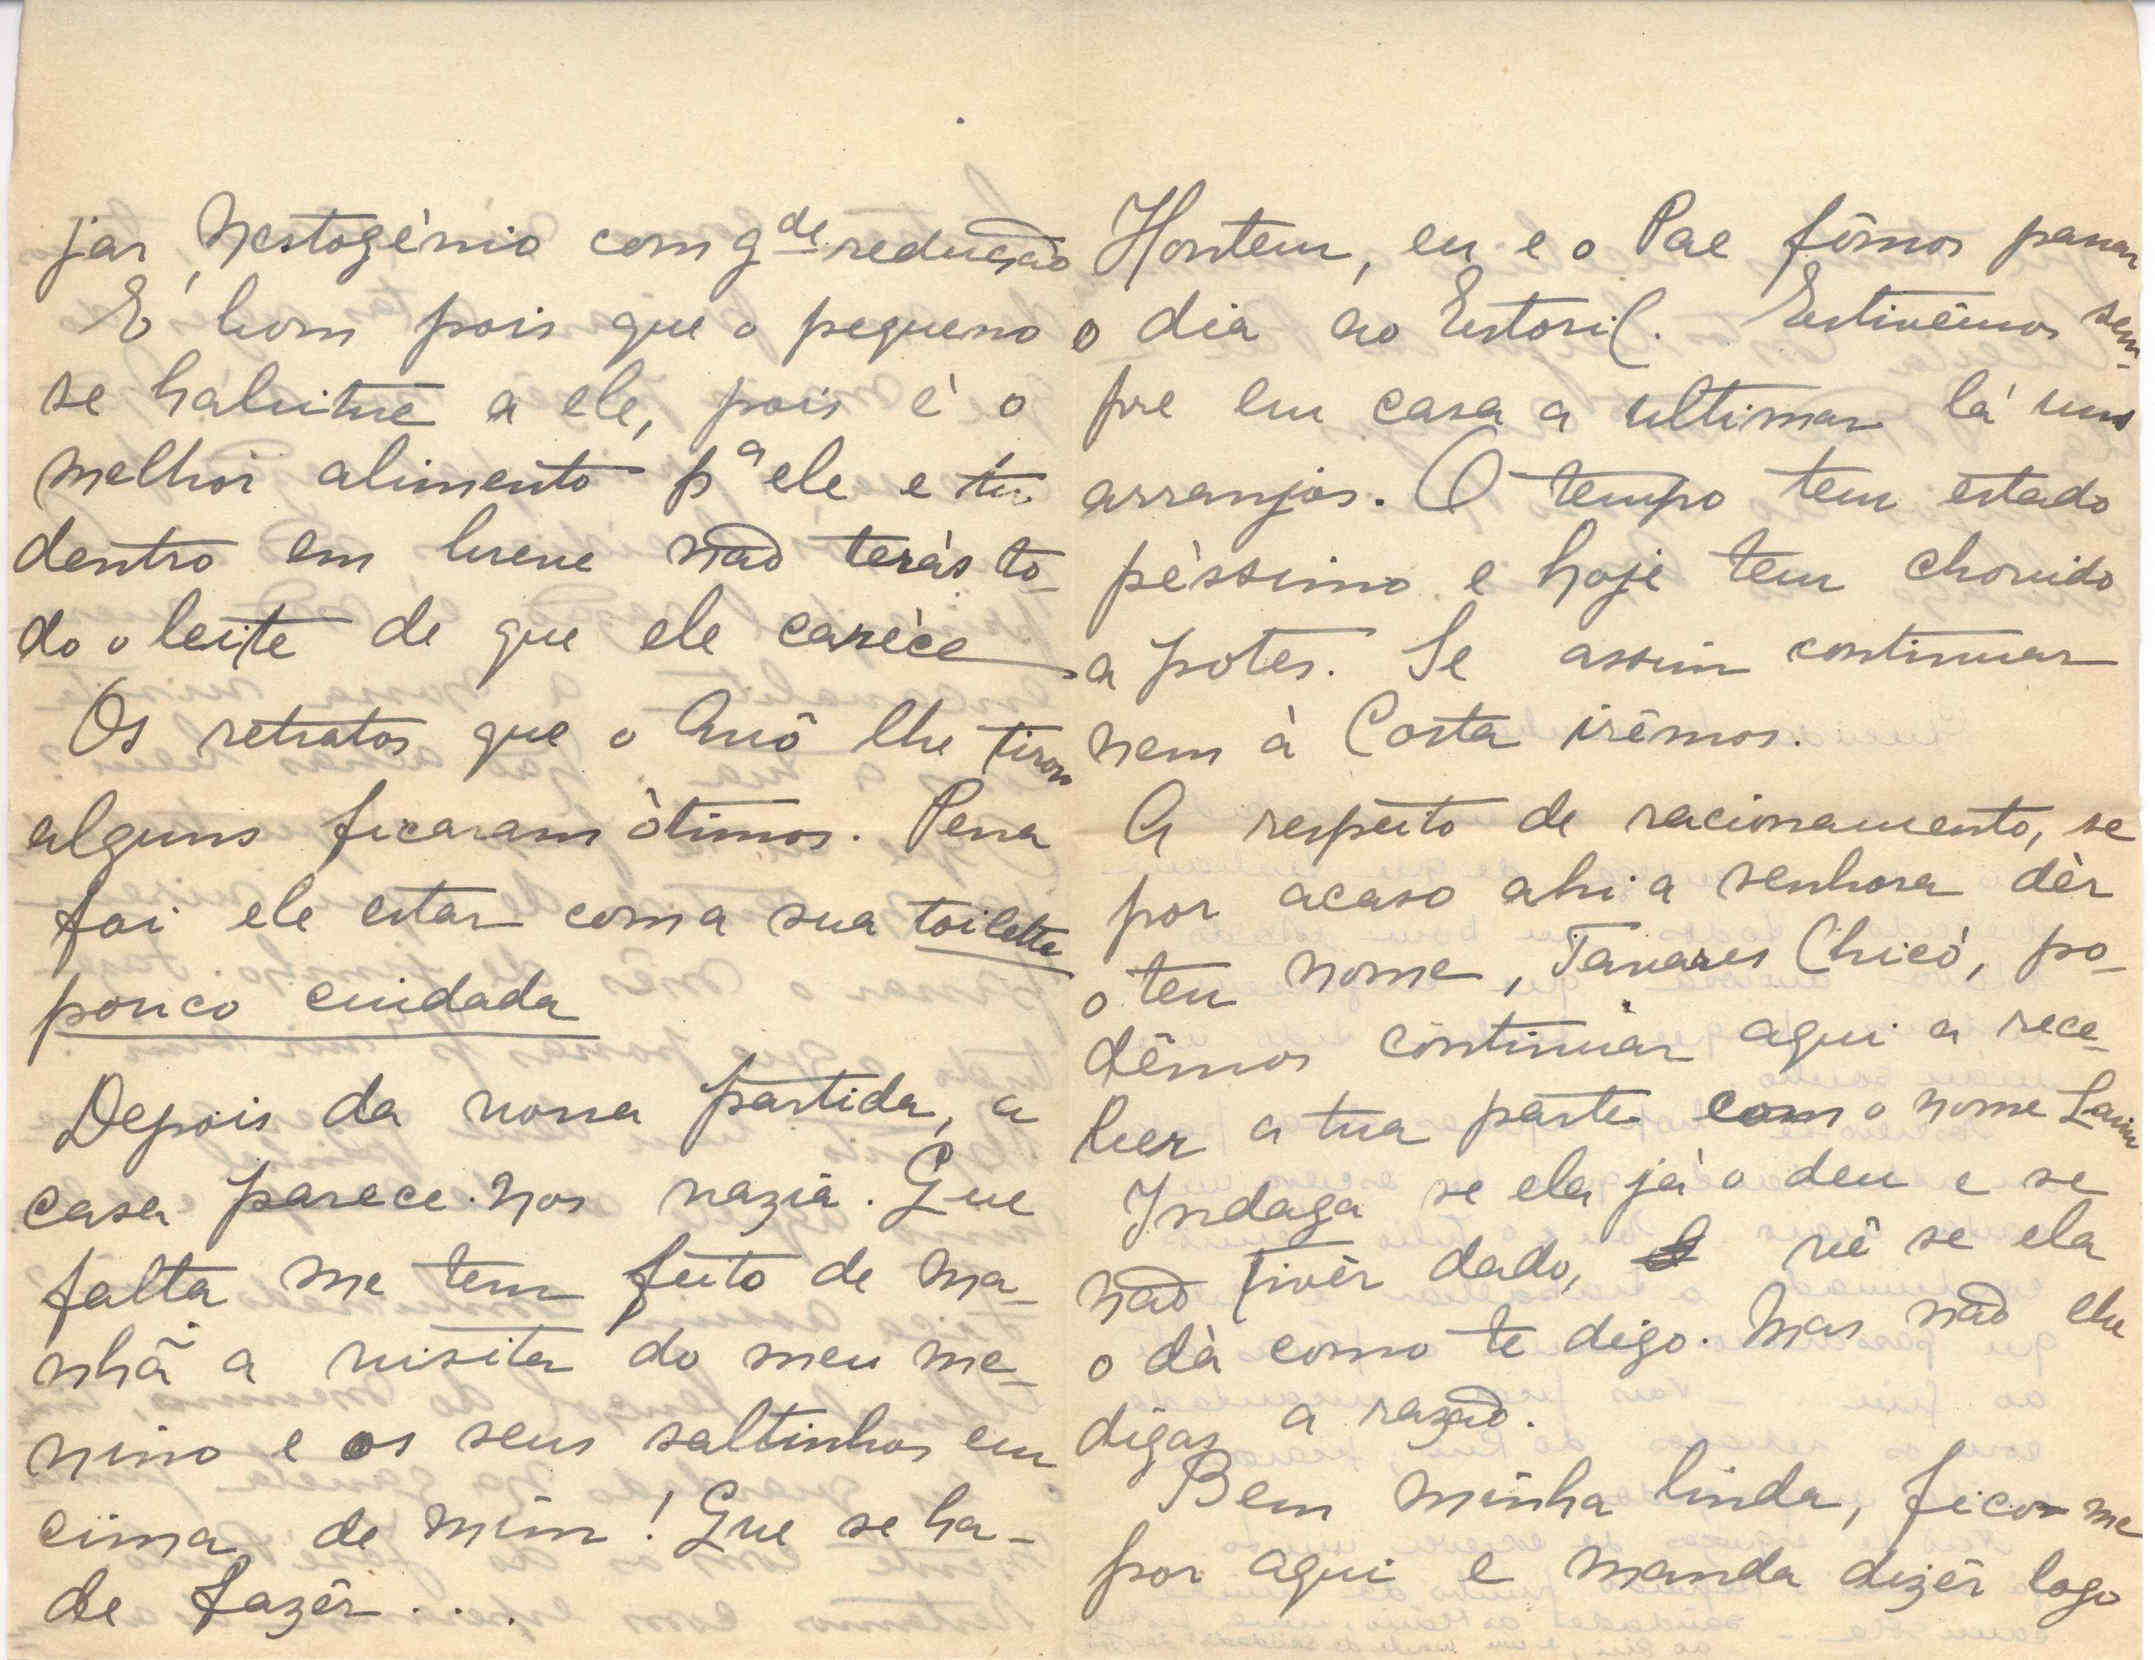 jar, Nestogènio com gde redução
É bom pois que o pequeno
se habitue a ele, pois é o
melhor alimento pª ele e tu
dentro em breve não teràs to-
do o leite de que ele carèce
Os retratos que o Avô lhe tirou
alguns ficaram òtimos. Pena
foi ele estar com a sua toilette
pouco cuidada
Depois da nossa partida, a
casa parece-nos vazia. Que
falta me tem feito de ma-
nhã a visita do meu me-
nino e os seus saltinhos em
cima de mim! Que se ha-
de fazêr....
Hontem, eu e o Pae fômos passar
o dia ao Estoril. Estivêmos sem-
pre em casa a ultimar lá uns
arranjos. O tempo tem estado
pèssimo e hoje tem chovido
a potes. Se assim continuar
nem à Costa irêmos.
A respeito de racionamento, se
por acaso ahi a senhora dèr
o teu nome, Tavares Chicó, po-
dêmos continuar aqui a rece-
ber a tua parte com o nome
Indaga se ela já o deu e se
não tivêr dado, vê se ela
o dà como te digo. Mas não lhe
digas a razão.
Bem minha linda, fico-me
por aqui e manda dizêr logo